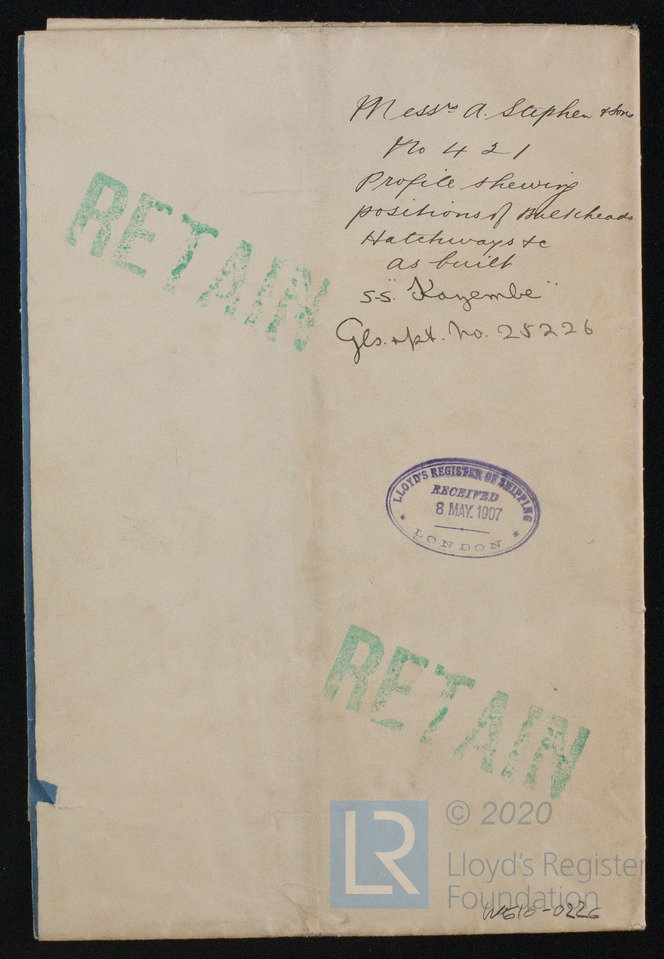 Messrs A. Stephen & Sons
No 421
Profile shewing
positions of Bulkheads
Hatchways &c
as built
S.S. "Kazembe"
Gls. rpt. No. 25226
RETAIN
LLOYD'S REGISTER OF SHIPPING
RECEIVED
8 MAY. 1907
LONDON
RETAIN
LR
© 2020
Lloyd's Register
Foundation
W616-0226